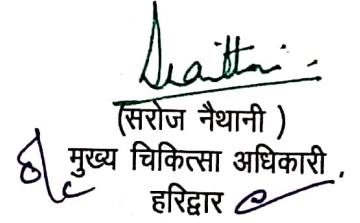 (सरोज नैथानी )
मुख्य चिकित्सा अधिकारी
हरिद्वार